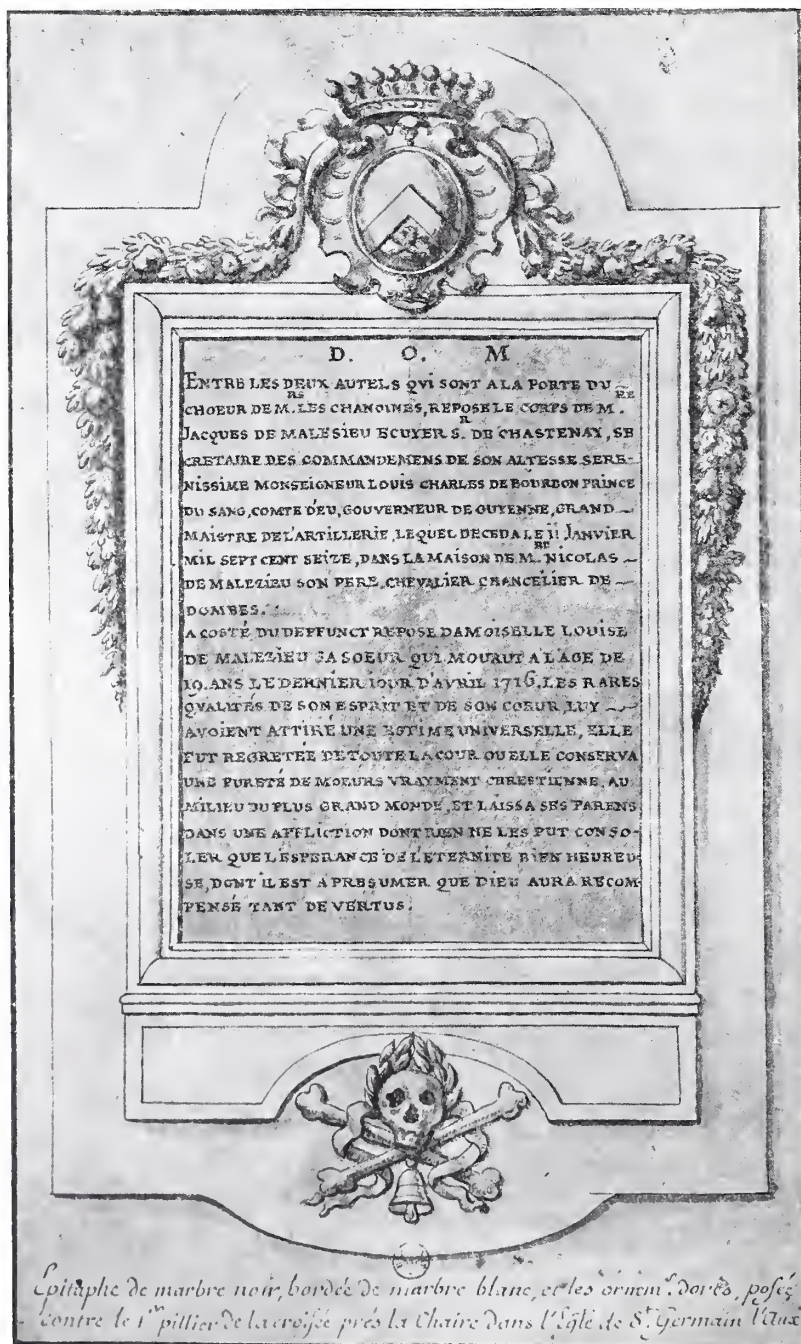 D. O. M
ENTRE LES DEUX AUTELS QVI SONT A LA PORTE DU
CHOEUR DE M.RS LES CHANOINES, REPOSE LE CORPS DE M.RE
JACQUES DE MALESIEU ECUYER S.R DE CHASTENAY, SE
CRETAIRE DES COMMANDEMENS DE SON ALTESSE SERE-
NISSIME MONSEIGNEUR LOUIS CHARLES DE BOURBON PRINCE
DU SANG, COMTE D'EU, GOUVERNEUR DE GUYENNE, GRAND
MAISTRE DE L'ARTILLERIE, LEQUEL DECEDA LE 11 JANVIER
MIL SEPT CENT SEIZE, DANS LA MAISON DE M.RE NICOLAS
DE MALEZIEU SON PERE, CHEVALIER CHANCELIER DE
DOMBES.
A COSTÉ DU DEFFUNCT REPOSE DAMOISELLE LOUISE
DE MALEZIEU SA SOEUR QUI MOURUT A L'AGE DE
19. ANS LE DERNIER IOUR D'AVRIL 1716. LES RARES
QVALITÉS DE SON ESPRIT ET DE SON COEUR, LUY
AVOIENT ATTIRÉ UNE ESTIME UNIVERSELLE, ELLE
FUT REGRETÉE DE TOUTE LA COUR OU ELLE CONSERVA
UNE PURETÉ DE MOEURS VRAYMENT CHRESTIENNE, AU
MILIEU DU PLUS GRAND MONDE, ET LAISSA SES PARENS
DANS UNE AFFLICTION DONT RIEN NE LES PUT CONSO-
LER QUE L'ESPERANCE DE L'ETERNITÉ BIEN HEUREU-
SE, DONT IL EST A PRESUMER QUE DIEU AURA RECOM-
PENSÉ TANT DE VERTUS.
Epitaphe de marbre noir, bordée de marbre blanc, et les ornem.s dorés, posée
contre le 1.er pillier de la croisée près la Chaire dans l'Eglé de S.t Germain l'Aux